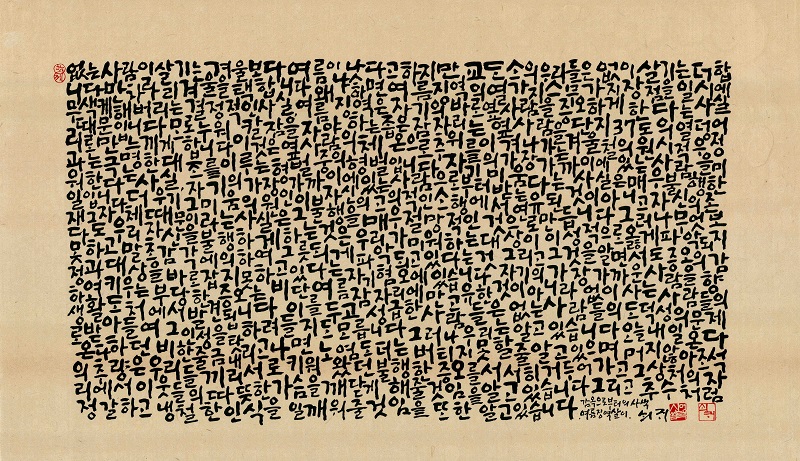 없는 사람이 살기는 겨울보다 여름이 낫다고 하지만 교도소의 우리들은 없이 살기는 더합
니다만 차라리 겨울을 택합니다 왜냐하면 여름징역의 열가지 스무가지 장점을 일시에
무색케 해버리는 결정적인 사실 여름징역은 자기의 바로 옆사람을 증오하게 한다는 사실
때문입니다 모로 누워 칼잠을 자야하는 좁은 잠자리는 옆사람을 단지 37도의 열덩어
리로만 느끼게 합니다 이것은 옆사람의 체온으로 추위를 이겨나가는 겨울철의 원시적 우정
과는 극명한 대조를 이루는 형벌중의 형벌입니다 자기의 가장 가까이에 있는 사람을 미
워한다는 사실 자기의 가장 가까이에 있는 사람으로부터 미움받는다는 사실은 매우 불행한
일입니다 더욱이 그 미움의 원인이 자신의 고의적인 소행에서 연유된 것이 아니고 자신의 존
재 그 자체 때문이라는 사실은 그 불행을 매우 절망적인 것으로 만듭니다 그러나 무엇보
다도 우리 자신을 불행하게 하는 것은 우리가 미워하는 대상이 이성적으로 옳게 파악되지
못하고 말초감각에 의하여 그릇되게 파악되고 있다는 것 그리고 그것을 알면서도 증오의 감
정과 대상을 바로잡지 못하고 있다는 자기혐오에 있습니다 자기의 가장 가까운 사람을 향
하여 키우는 부당한 증오는 비단 여름잠자리에만 고유한 것이 아니라 없이 사는 사람들의
생활 도처에서 발견됩니다 이를 두고 성급한 사람들은 없는 사람들의 도덕성의 문제
로 받아들여 그 인성을 탓하려 들지도 모릅니다 그러나 우리들은 알고 있습니다 오늘 내일 온다
온다하던 비 한줄금 내리고 나면 노염도 더는 버티지 못할 줄 알고 있으며 머지않아 조석
의 추량은 우리들끼리 서로 키워왔던 불행한 증오를 서서히 거두어가고 그 상처의 자
리에서 이웃들의 따뜻한 가슴을 깨닫게 해줄 것임을 알고 있습니다 그리고 추수처럼
정갈하고 냉철한 인식을 일깨워 줄 것임을 또한 알고 있습니다
감옥으로부터의 사색
여름징역살이. 쇠귀